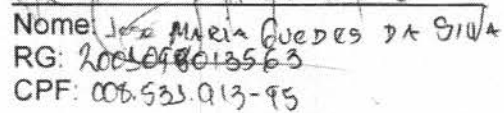 Nome: José MARIA GUEDES DA SILVA
RG: 2003098013563
CPF: 008.533.913-95